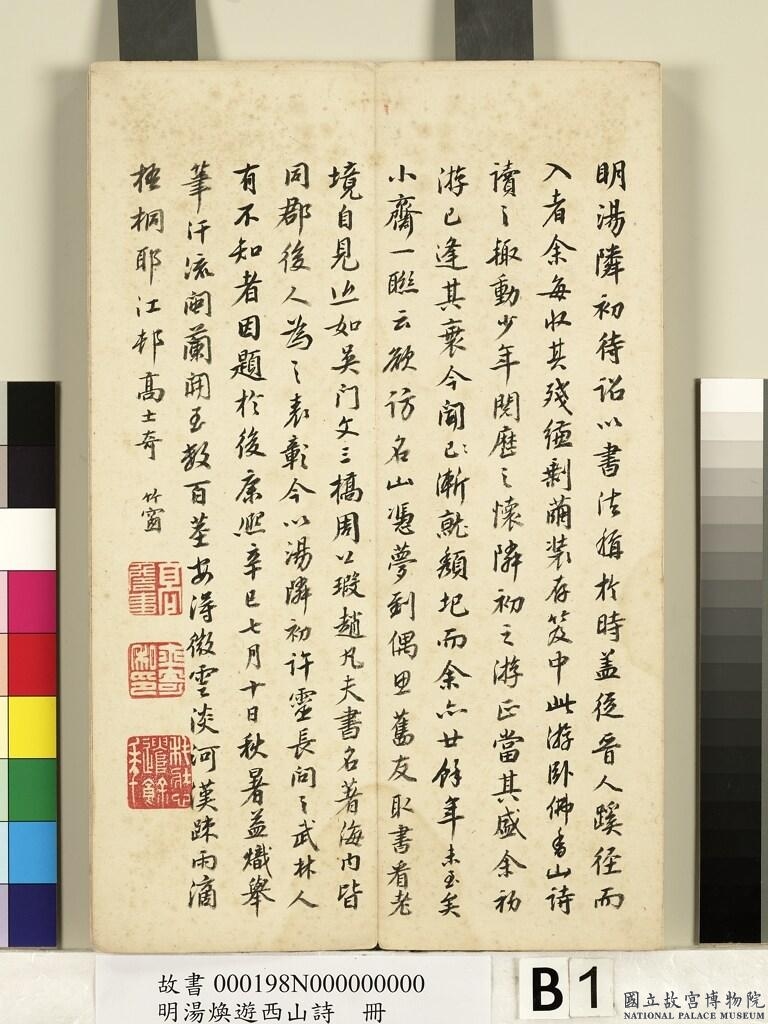 明湯隣初待詔以書法擅於時蓋從晉人蹊徑而
入者余每收其殘縑剩繭裝存笈中此游卧佛香山詩
讀之趣動少年閱歷之懷隣初之游正當其盛余初
游已逢其衰今聞已漸就頹圯而余亦廿餘年未至矣
小齋一聯云欲訪名山憑夢到偶思舊友取書看老
境自見止如吳門文三橋周公瑕趙凡夫書名著海內皆
同郡後人為之表彰今以湯隣初許靈長問之武林人
有不知者因題於後康熙辛巳七月十日秋暑益熾舉
筆汗流闽蘭開至數百莖安得微雲淡河漢疎雨滴
梧桐耶江邨高士奇 竹窗
故書 000198N000000000
明湯煥遊西山詩 冊
B 1
國立故宮博物院
NATIONAL PALACE MUSEUM